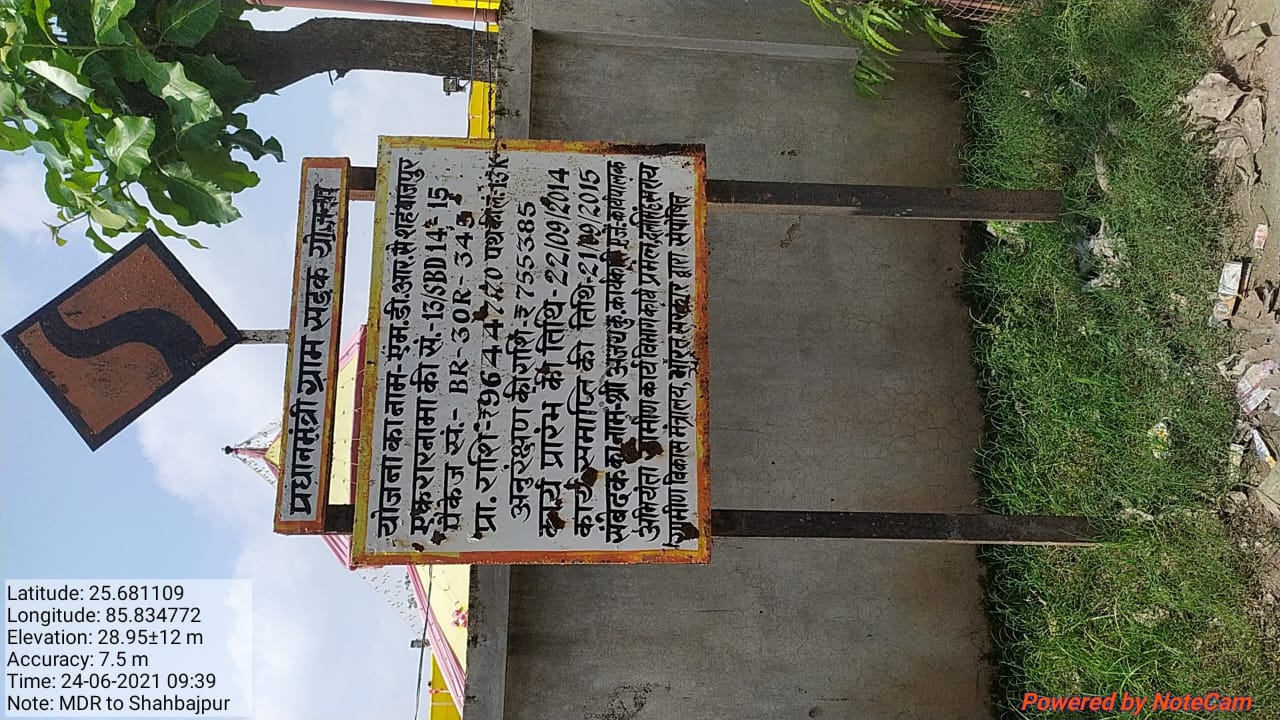 प्रधानमंत्री ग्राम सड़क योजना
योजना का नाम-एम.डी.आर.से शहबाजपुर
एकरारनामा की सं.-13/SBD 14-15
पैकेज सं.- BR-30R-345
प्रा. राशि-₹ पथ की ल.-1.3K
अनुरक्षण की राशि-₹ 755385
कार्य प्रारंभ की तिथि- 22/09/2014
कार्य समाप्ति की तिथि-21/09/2015
संवेदक का नाम-श्री अजय कु.
अभियंता ग्रामीण कार्य विभाग कार्य
ग्रामीण विकास मंत्रालय, भारत सरकार द्वारा संपोषित
Latitude: 25.681109
Longitude: 85.834772
Elevation: 28.95±12 m
Accuracy: 7.5 m
Time: 24-06-2021 09:39
Note: MDR to Shahbajpur
Powered by NoteCam